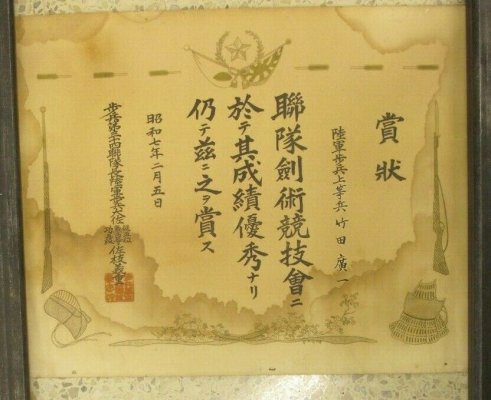 賞狀
陸軍歩兵上等兵 竹田廣一
聯隊劍術競技會ニ
於テ其成績優秀ナリ
仍テ茲ニ之ヲ賞ス
昭和七年二月五日
歩兵第三十四聯隊長陸軍歩兵大佐